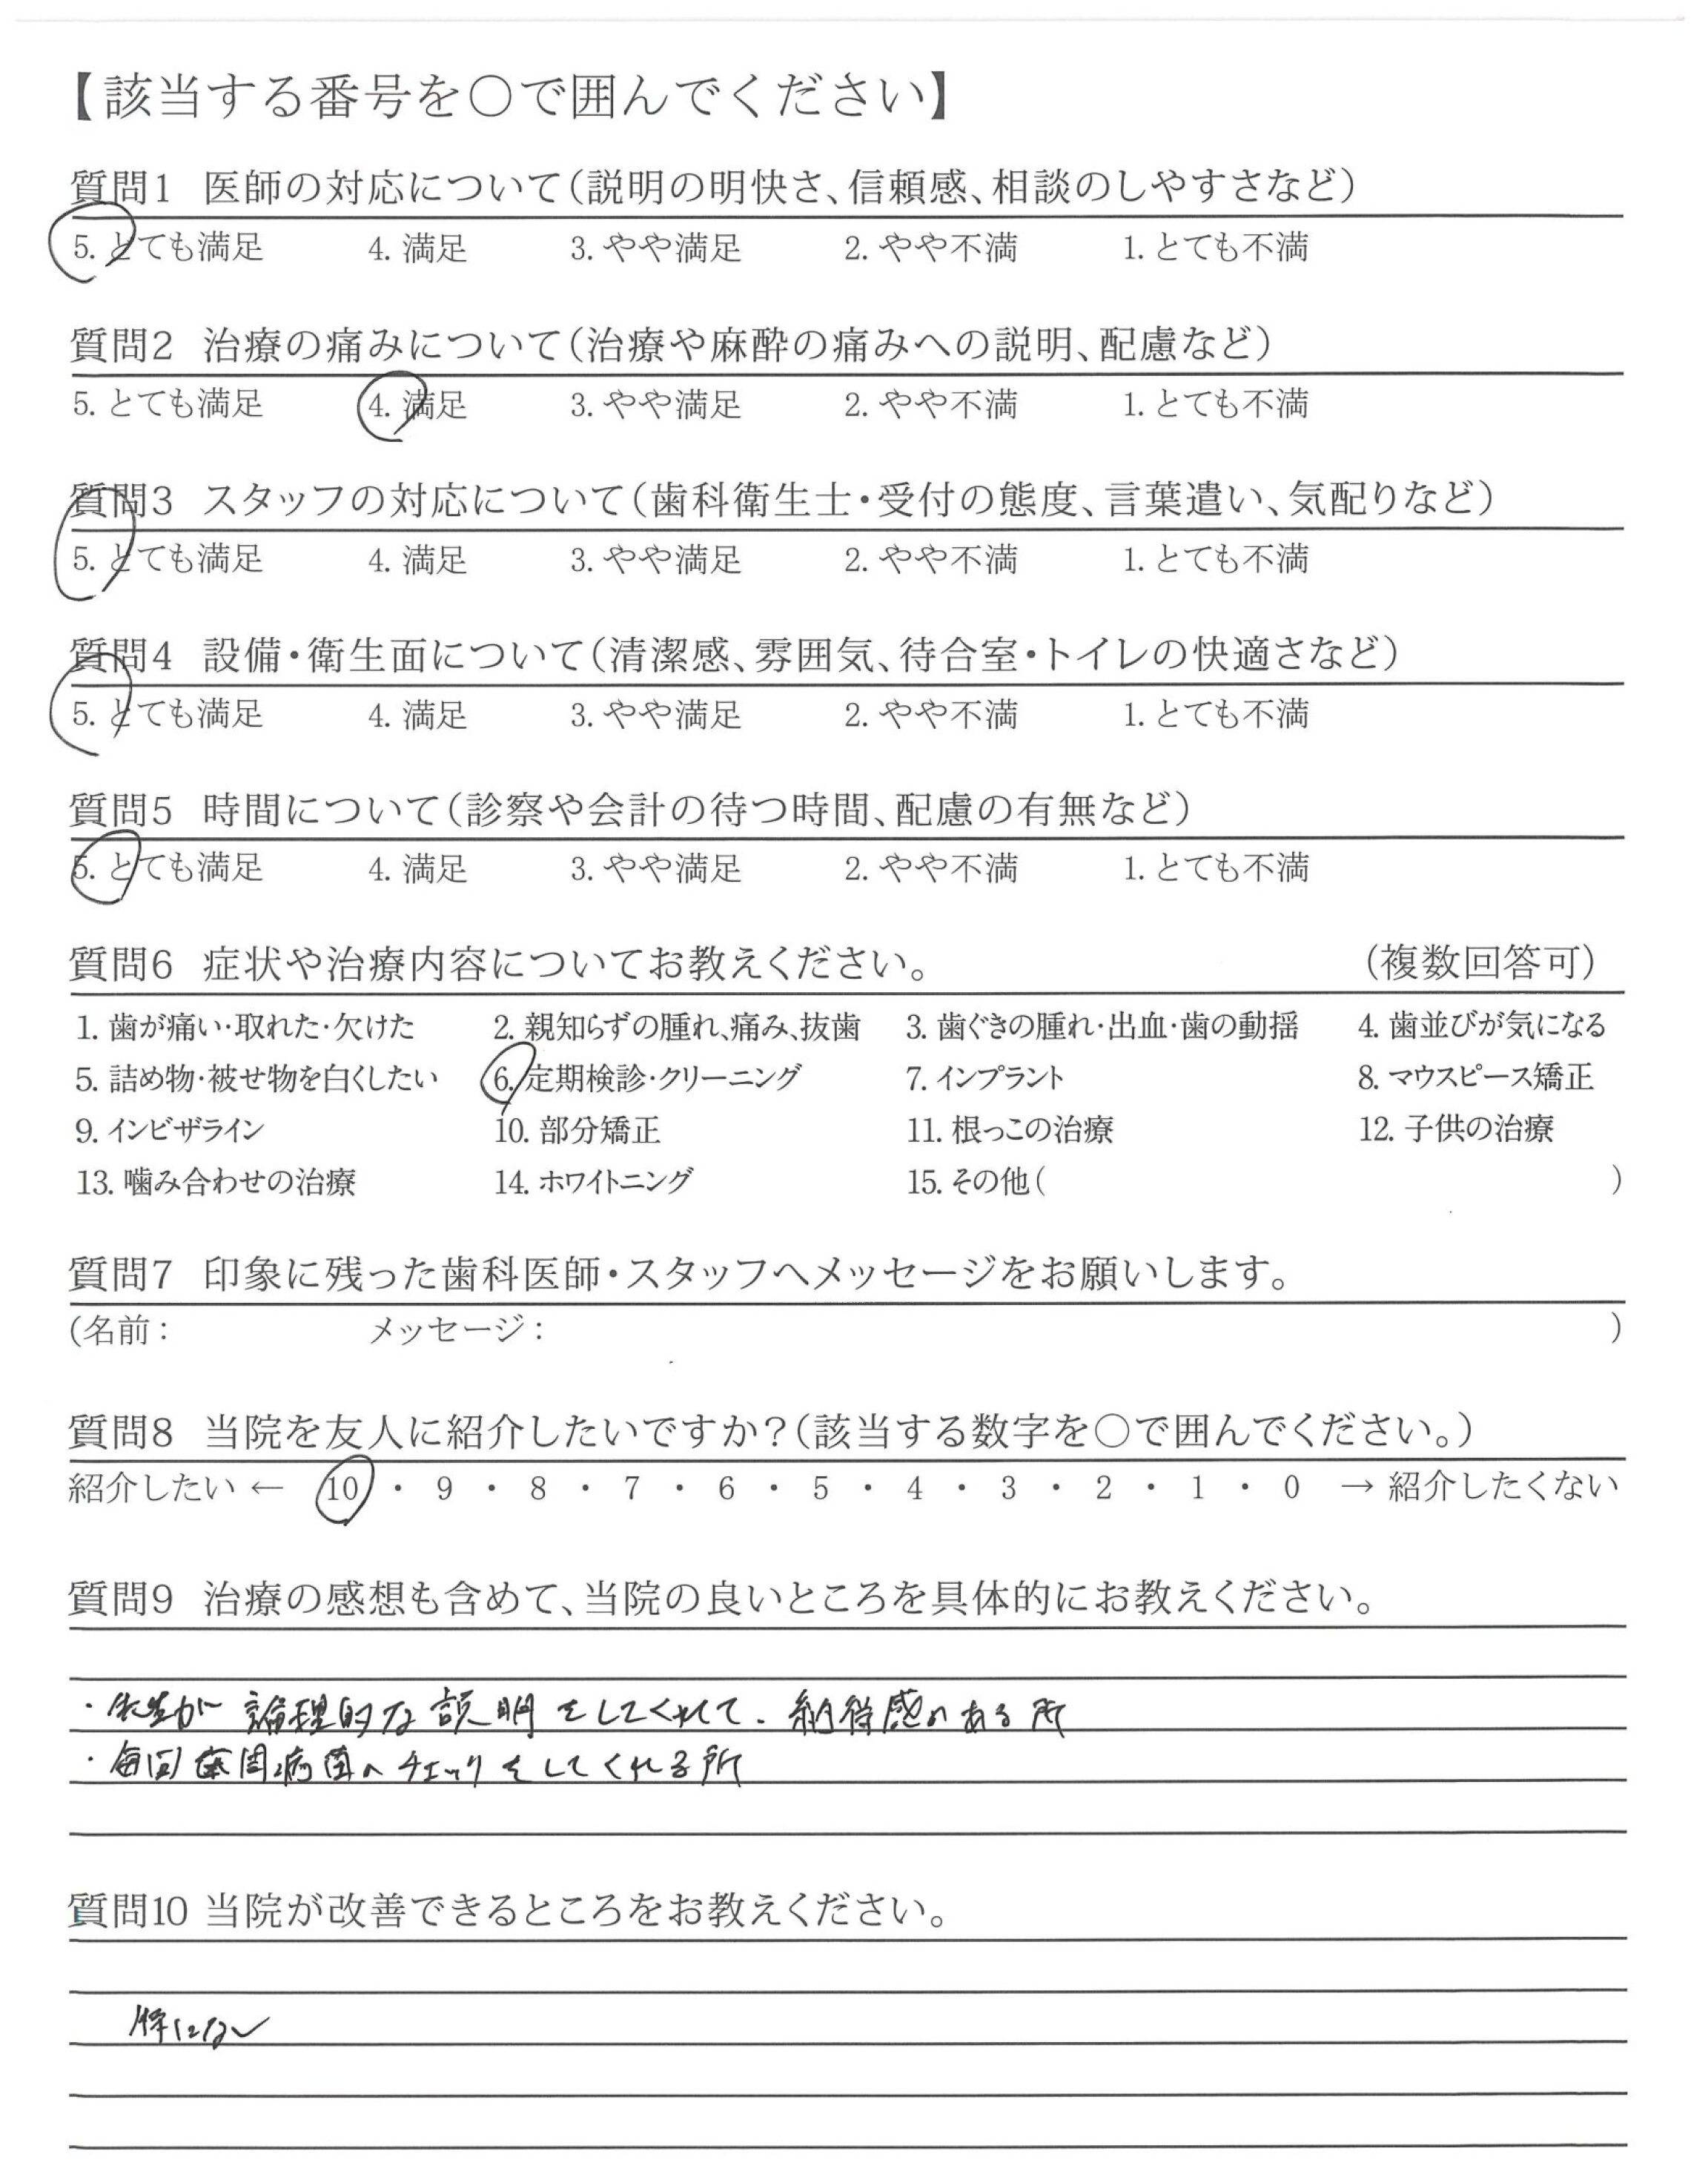 【該当する番号を○で囲んでください】
質問1 医師の対応について(説明の明快さ、信頼感、相談のしやすさなど)
5. とても満足 4. 満足 3. やや満足 2. やや不満 1. とても不満
質問2 治療の痛みについて(治療や麻酔の痛みへの説明、配慮など)
5. とても満足 4. 満足 3. やや満足 2. やや不満 1. とても不満
質問3 スタッフの対応について(歯科衛生士・受付の態度、言葉遣い、気配りなど)
5. とても満足 4. 満足 3. やや満足 2. やや不満 1. とても不満
質問4 設備・衛生面について(清潔感、雰囲気、待合室・トイレの快適さなど)
5. とても満足 4. 満足 3. やや満足 2. やや不満 1. とても不満
質問5 時間について(診察や会計の待つ時間、配慮の有無など)
5. とても満足 4. 満足 3. やや満足 2. やや不満 1. とても不満
質問6 症状や治療内容についてお教えください。 (複数回答可)
1. 歯が痛い・取れた・欠けた 2. 親知らずの腫れ、痛み、抜歯 3. 歯ぐきの腫れ・出血・歯の動揺 4. 歯並びが気になる
5. 詰め物・被せ物を白くしたい 6. 定期検診・クリーニング 7. インプラント 8. マウスピース矯正
9. インビザライン 10. 部分矯正 11. 根っこの治療 12. 子供の治療
13. 噛み合わせの治療 14. ホワイトニング 15. その他( )
質問7 印象に残った歯科医師・スタッフへメッセージをお願いします。
(名前: メッセージ: )
質問8 当院を友人に紹介したいですか?(該当する数字を○で囲んでください。)
紹介したい ← 10 ・ 9 ・ 8 ・ 7 ・ 6 ・ 5 ・ 4 ・ 3 ・ 2 ・ 1 ・ 0 → 紹介したくない
質問9 治療の感想も含めて、当院の良いところを具体的にお教えください。
・先生が論理的な説明をしてくれて、納得感のある所
・毎回歯周病菌のチェックをしてくれる所
質問10 当院が改善できるところをお教えください。
特にない